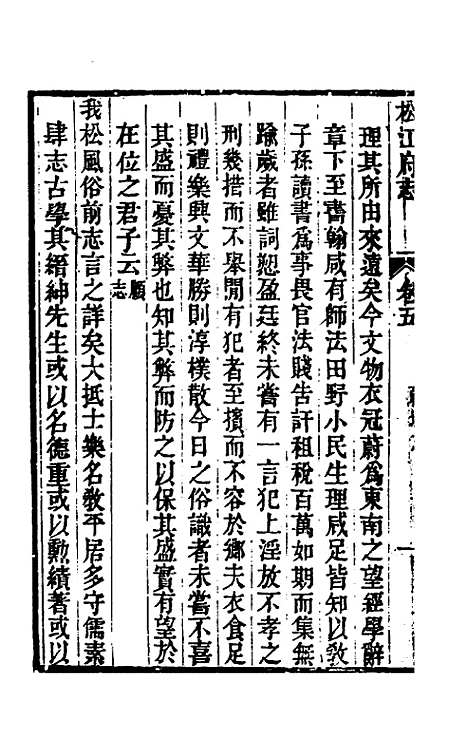 松江府志
卷五
理其所由來遠矣今文物衣冠蔚爲東南之望經學辭
章下至書翰咸有師法田野小民生理咸足皆知以敎
子孫讀書爲事畏官法賤告訐租稅百萬如期而集無
踰歲者雖詞愬盈廷終未嘗有一言犯上淫放不孝之
刑幾措而不舉閒有犯者至擯而不容於鄉夫衣食足
則禮樂興文華勝則淳樸散今日之俗識者未嘗不喜
其盛而憂其弊也知其弊而防之以保其盛實有望於
在位之君子云顧志
我松風俗前志言之詳矣大抵士樂名敎平居多守儒素
肆志古學其縉紳先生或以名德重或以勳績著或以